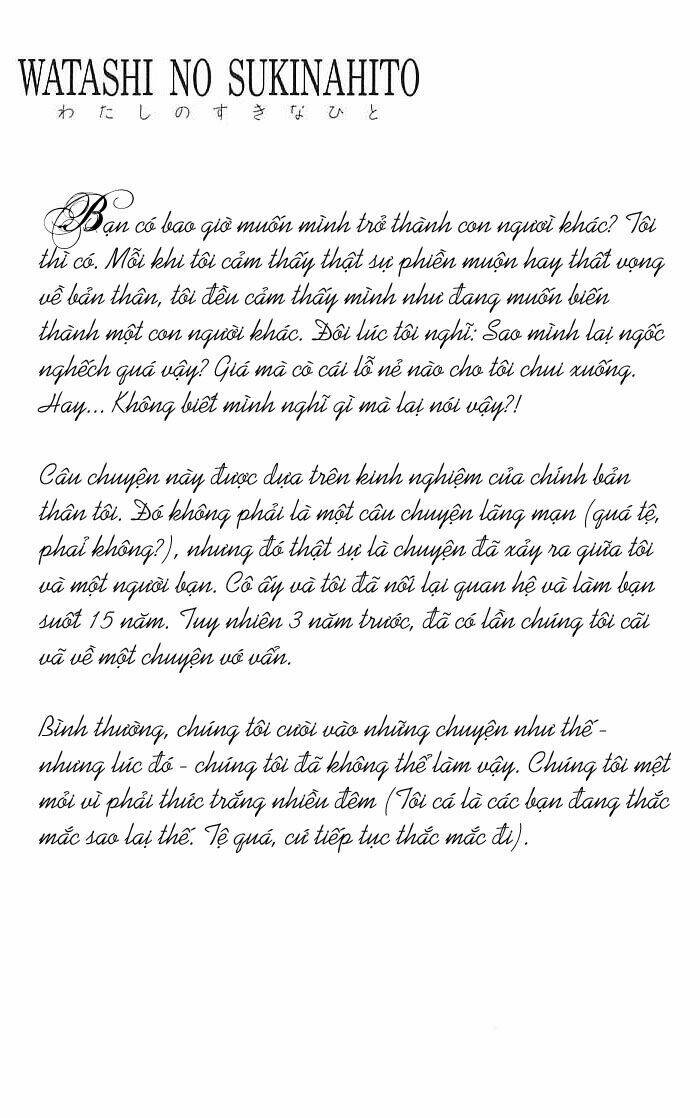 WATASHI NO SUKINAHITO
わたしのすきなひと
Bạn có bao giờ muốn mình trở thành con người khác? Tôi
thì có. Mỗi khi tôi cảm thấy thật sự phiền muộn hay thất vọng
về bản thân, tôi đều cảm thấy mình như đang muốn biến
thành một con người khác. Đôi lúc tôi nghĩ: Sao mình lại ngốc
nghếch quá vậy? Giá mà cò cái lỗ nẻ nào cho tôi chui xuống.
Hay... Không biết mình nghĩ gì mà lại nói vậy?!
Câu chuyện này được dựa trên kinh nghiệm của chính bản
thân tôi. Đó không phải là một câu chuyện lãng mạn (quá tệ,
phải không?), nhưng đó thật sự là chuyện đã xảy ra giữa tôi
và một người bạn. Cô ấy và tôi đã nối lại quan hệ và làm bạn
suốt 15 năm. Tuy nhiên 3 năm trước, đã có lần chúng tôi cãi
vã về một chuyện vớ vẩn.
Bình thường, chúng tôi cười vào những chuyện như thế -
nhưng lúc đó - chúng tôi đã không thể làm vậy. Chúng tôi mệt
mỏi vì phải thức trắng nhiều đêm (Tôi cá là các bạn đang thắc
mắc sao lại thế. Tệ quá, cứ tiếp tục thắc mắc đi).